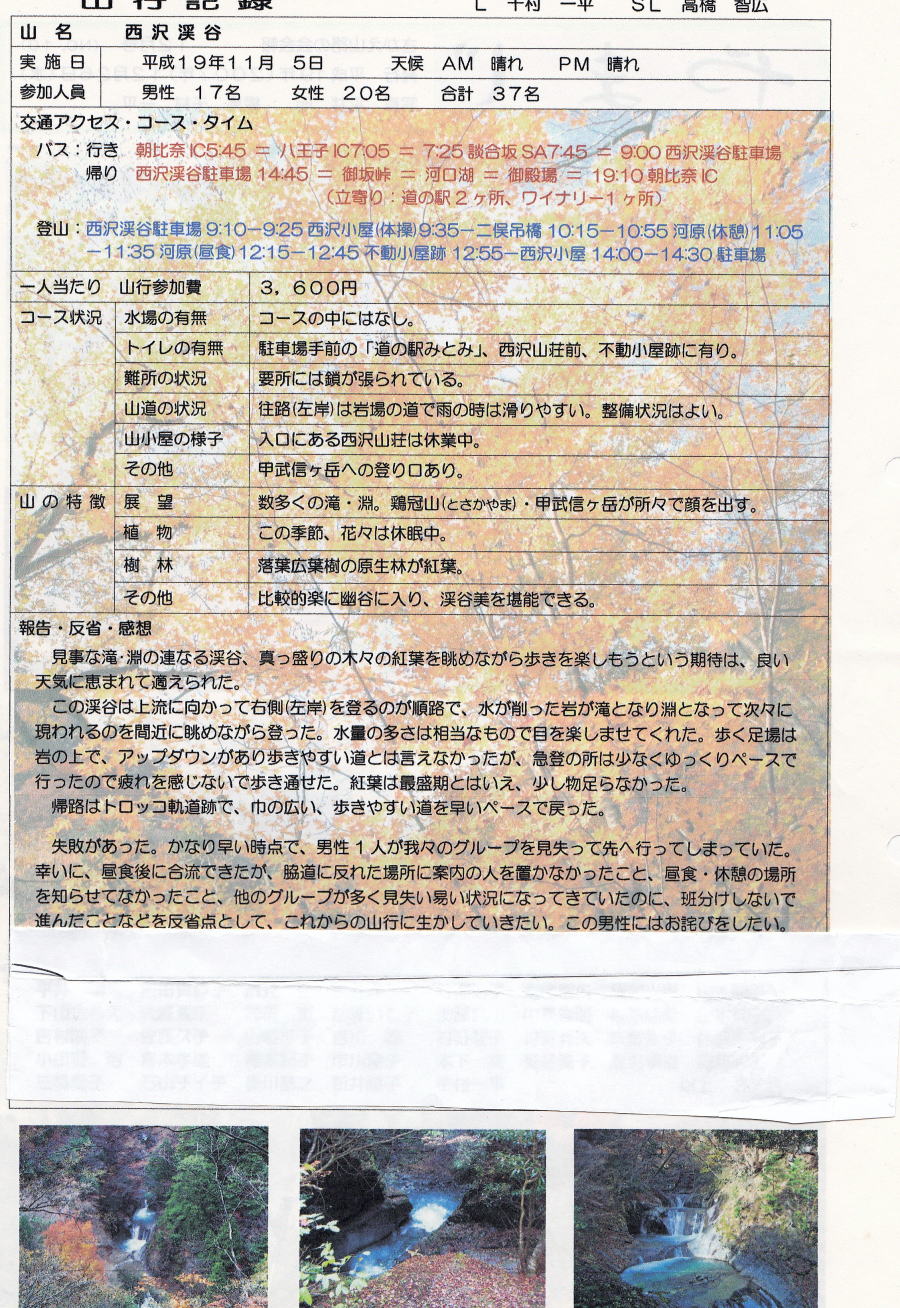 山行記録　L　千村　一平　SL　高橋　智広
山　名　西 沢 渓 谷
実 施 日　平成１９年１１月　５日　天候　AM　晴れ　PM　晴れ
参加人員　男性　１７名　女性　２０名　合計　３７名
交通アクセス・コース・タイム
バス：行き　朝比奈 IC5:45 ＝ 八王子 IC7:05 ＝ 7:25 談合坂 SA7:45 ＝ 9:00 西沢渓谷駐車場
帰り　西沢渓谷駐車場 14:45 ＝ 御坂峠 ＝ 河口湖 ＝ 御殿場 ＝ 19:10 朝比奈 IC
（立寄り：道の駅２ヶ所、ワイナリー１ヶ所）
登山：西沢渓谷駐車場 9:10－9:25 西沢小屋(体操)9:35－二俣吊橋 10:15－10:55 河原(休憩)11:05
－11:35 河原(昼食)12:15－12:45 不動小屋跡 12:55－西沢小屋 14:00－14:30 駐車場
一人当たり　山行参加費　３，６００円
コース状況　水場の有無　コースの中にはなし。
トイレの有無　駐車場手前の「道の駅みとみ」、西沢山荘前、不動小屋跡に有り。
難所の状況　要所には鎖が張られている。
山道の状況　往路(左岸)は岩場の道で雨の時は滑りやすい。整備状況はよい。
山小屋の様子　入口にある西沢山荘は休業中。
その他　甲武信ヶ岳への登り口あり。
山 の 特 徴　展　望　数多くの滝・淵。鶏冠山(とさかやま)・甲武信ヶ岳が所々で顔を出す。
植　物　この季節、花々は休眠中。
樹　林　落葉広葉樹の原生林が紅葉。
その他　比較的楽に幽谷に入り、渓谷美を堪能できる。
報告・反省・感想
見事な滝・淵の連なる渓谷、真っ盛りの木々の紅葉を眺めながら歩きを楽しもうという期待は、良い
天気に恵まれて適えられた。
この渓谷は上流に向かって右側(左岸)を登るのが順路で、水が削った岩が滝となり淵となって次々に
現われるのを間近に眺めながら登った。水量の多さは相当なもので目を楽しませてくれた。歩く足場は
岩の上で、アップダウンがあり歩きやすい道とは言えなかったが、急登の所は少なくゆっくりペースで
行ったので疲れを感じないで歩き通せた。紅葉は最盛期とはいえ、少し物足らなかった。
帰路はトロッコ軌道跡で、巾の広い、歩きやすい道を早いペースで戻った。
失敗があった。かなり早い時点で、男性１人が我々のグループを見失って先へ行ってしまっていた。
幸いに、昼食後に合流できたが、脇道に反れた場所に案内の人を置かなかったこと、昼食・休憩の場所
を知らせてなかったこと、他のグループが多く見失い易い状況になってきていたのに、班分けしないで
進んだことなどを反省点として、これからの山行に生かしていきたい。この男性にはお詫びをしたい。